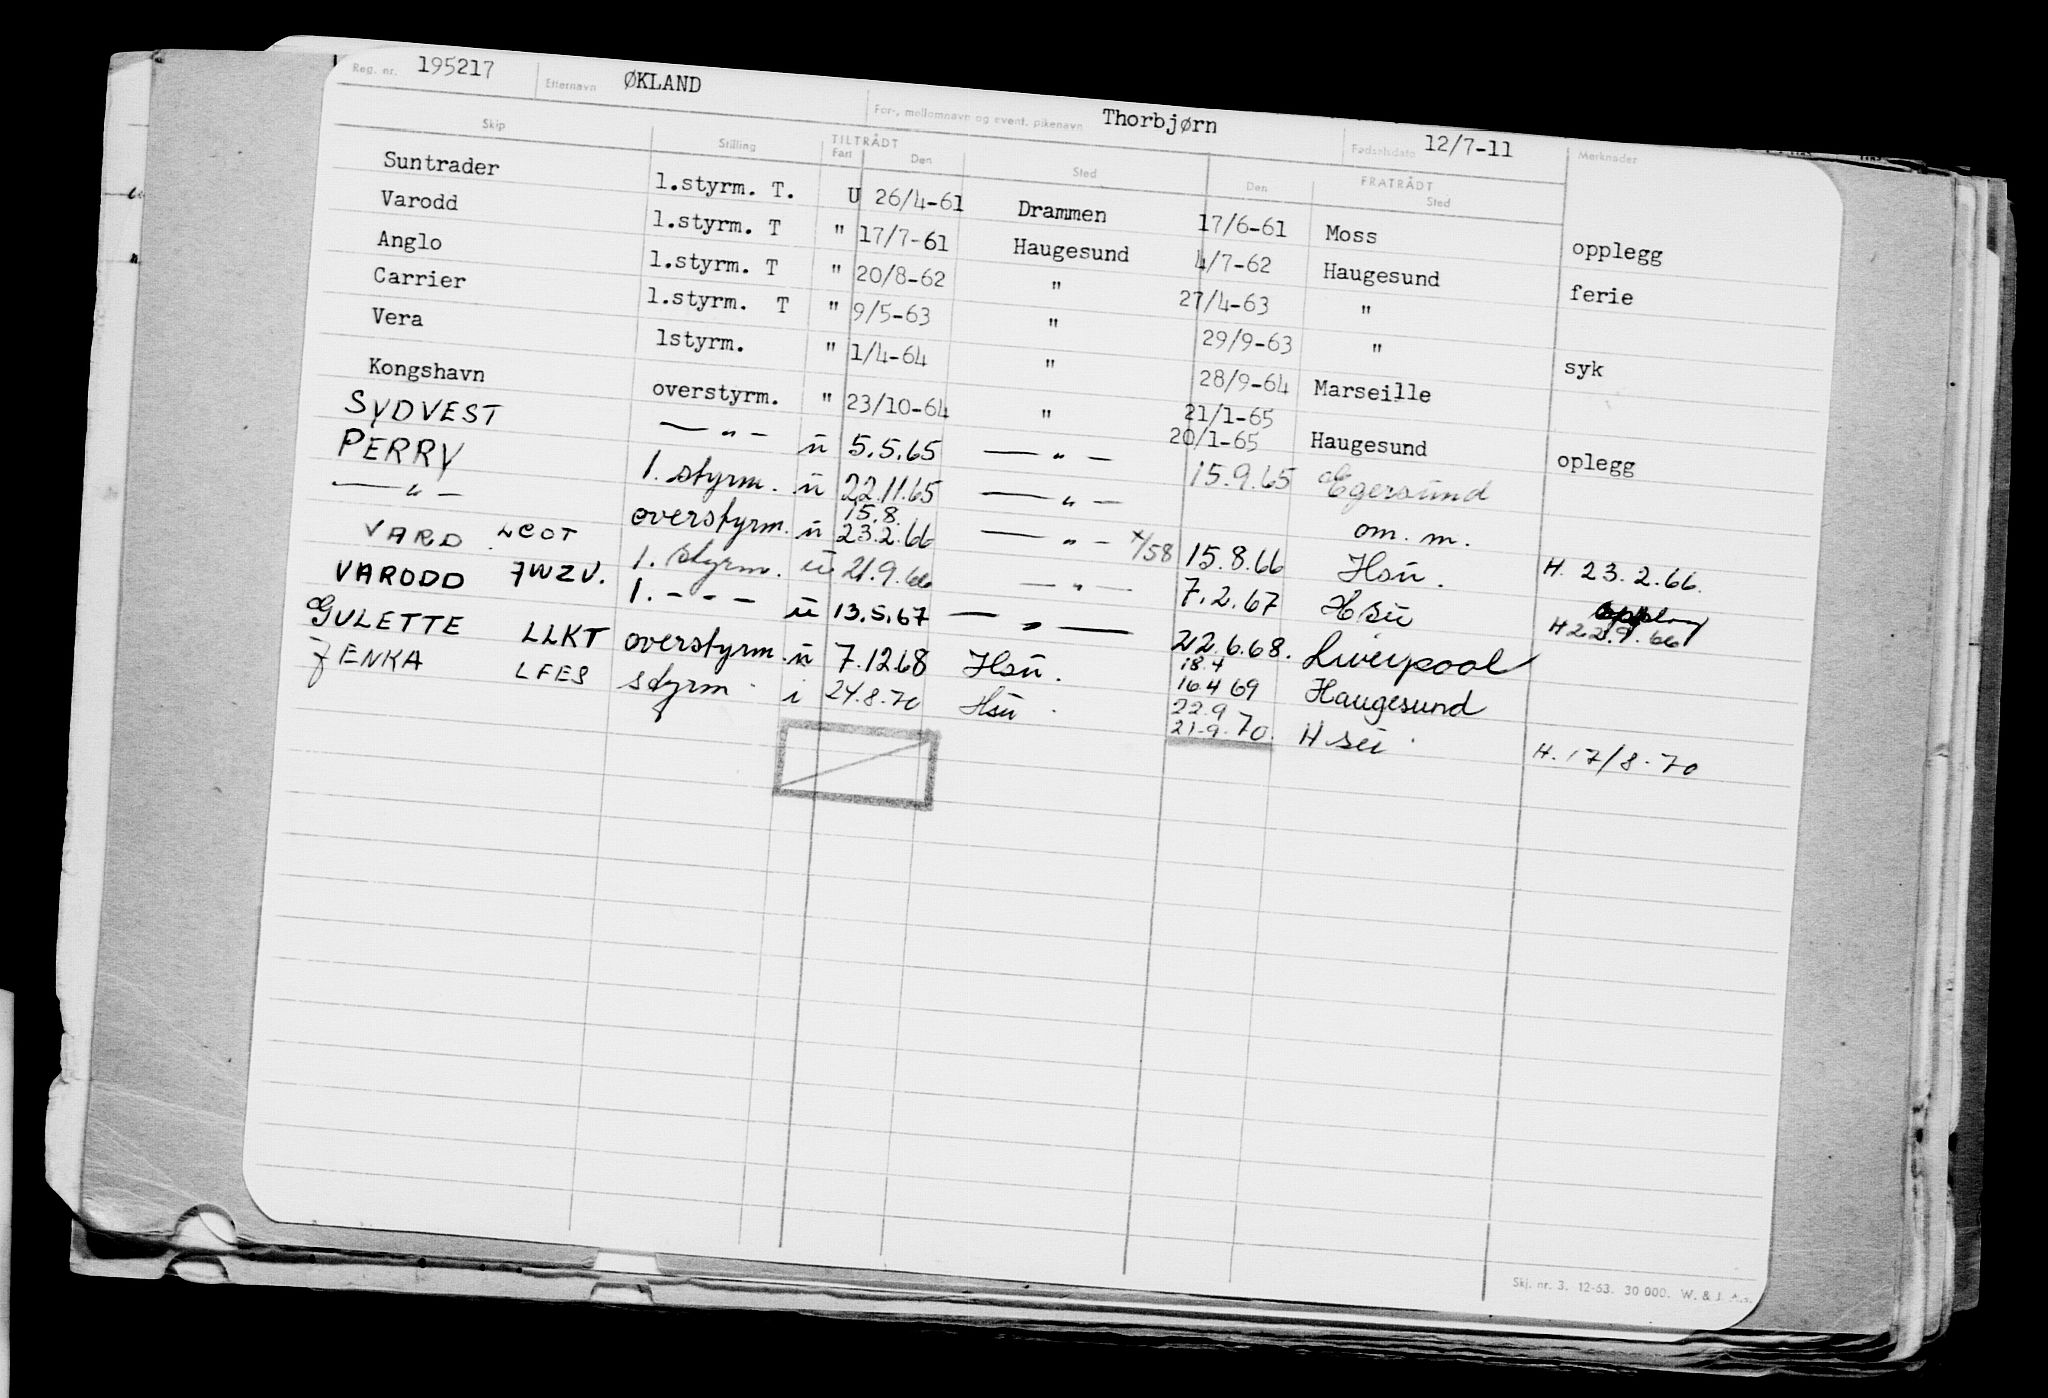 Reg. nr. 195217 Etternavn ØKLAND For-, mellomnavn og event. pikenavn Thorbjørn Fødselsdato 12/7-11 Merknader
Skip Stilling TILTRÅDT Fart Den Sted FRATRÅDT Den Sted
Suntrader 1.styrm. T. U 26/4-61 Drammen 17/6-61 Moss opplegg
Varodd 1.styrm. T " 17/7-61 Haugesund 4/7-62 Haugesund ferie
Anglo 1.styrm. T " 20/8-62 " 27/4-63 "
Carrier 1.styrm. T " 9/5-63 " 29/9-63 " syk
Vera 1styrm. " 1/4-64 " 28/9-64 Marseille
Kongshavn overstyrm. " 23/10-64 " 21/1-65
20/1-65 Haugesund oplegg
SYDVEST — " — u 5.5.65 — " — 15.9.65 Egersund
PERRY 1. styrm. u 22.11.65 — " — om. m.
— " — overstyrm. u 15.8. 23.2.66 — " — x/58 15.8.66 Hsu. H. 23.2.66.
VARD LCOT 1. styrm. u 21.9.66 — " — 7.2.67 Hsu H 22.9.66
VARODD JWZV. 1. - " - u 13.5.67 — " — 22.6.68. Liverpool
GULETTE LLKT overstyrm. u 7.12.68 Hsu. 18.4 16.4 69 Haugesund
JENKA LFES styrm. i 24.8.70 Hsu. 22.9 21.9.70. Hsu. H. 17/8.70
Skj. nr. 3. 12-63. 30 000. W. & J. A.s.